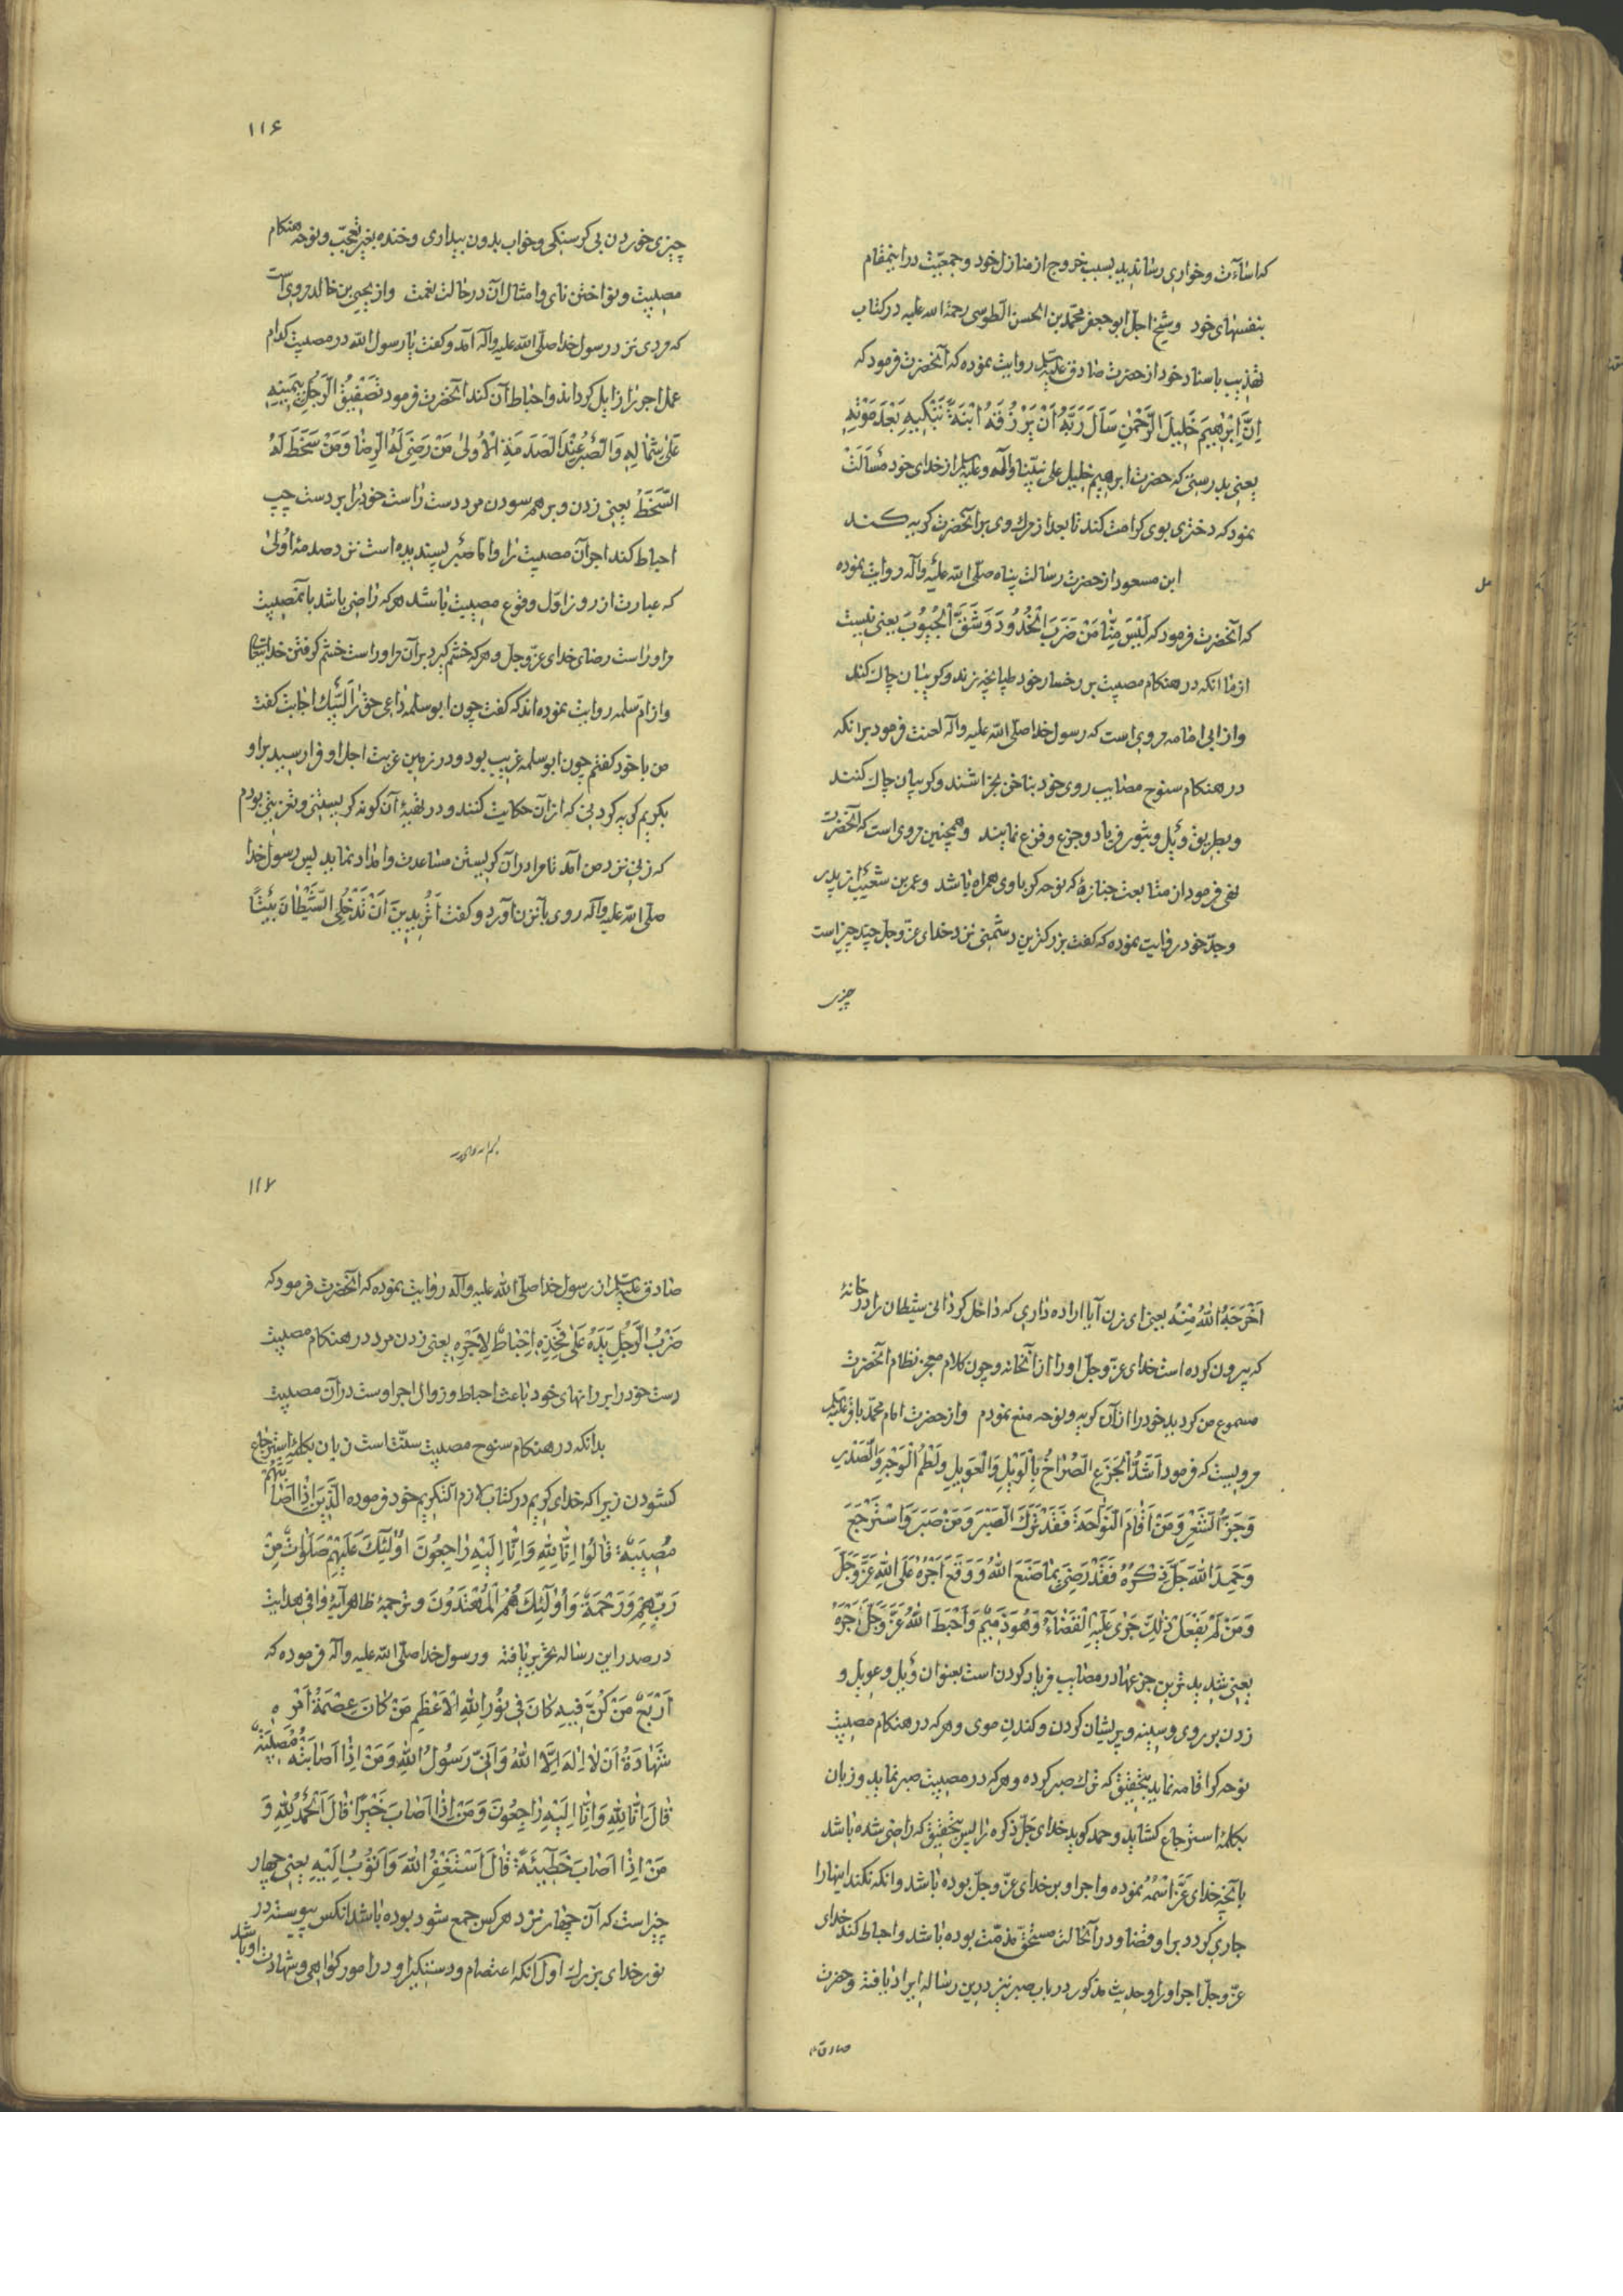 که اساءت و خواری رسانیدید بسبب خروج از منازل خود و جمعیّت در اینمقام
بنفسهای خود و شیخ اجل ابو جعفر محمّد بن الحسن الطوسی رحمة الله علیه در کتاب
تهذیب باسناد خود از حضرت صادق علیه السلم روایت نموده که آنحضرت فرمود که
اِنَّ اِبْرٰهِیمَ خَلِیلَ الرَّحْمٰنِ سَأَلَ رَبَّهُ اَنْ یَرْزُقَهُ ابْنَةً تَبْکِیهِ بَعْدَ مَوْتِهِ
یعنی بدرستی که حضرت ابرهیم خلیل علی نبیّنا وآله وعلیه السلم از خدای خود مسألت
نمود که دختری بوی کرامت کند تا بعد از مرك وی بر آنحضرت کریه کند
ابن مسعود از حضرت رسالت پناه صلّی الله علیه وآله روایت نموده
که آنحضرت فرمود که لَیْسَ مِنَّا مَنْ ضَرَبَ الْخُدُودَ وَشَقَّ الْجُیُوبَ یعنی نیست
از ما انکه در هنکام مصیبت بر رخسار خود طپانچه زند و کریبان چاك کند
و از ابی امامه مروی است که رسول خدا صلّی الله علیه وآله لعنت فرمود بر انکه
در هنکام سنوح مصایب روی خود بناخن بخراشند و کریبان چاك کنند
و بطریق وَیْل و ثبور فریاد و جزع و فزع نمایند و همچنین مروی است که آنحضرت
نهی فرمود از متابعت جنازهٔ که نوحه کر باوی همراه باشد و عمر بن شعیب از پدر
وجدّ خود روایت نموده که کفت بزرکترین دشمنی نزد خدای عزّ وجل چند چیز است
چیزی
۱۱۶
چیزی خوردن بی کرسنکی و خواب بدون بیداری و خنده بغیر تعجّب و نوحه هنکام
مصیبت و نواختن نای و امثال آن در حالت نعمت و از یحیی بن خالد مروی است
که مردی نزد رسول خدا صلّی الله علیه وآله آمد و کفت یا رسول الله در مصیبت کدام
عمل اجر را زایل کرداند و احباط آن کند آنحضرت فرمود تَصْفِیقُ الرَّجُلِ بِیَمِینِهِ
عَلیٰ شِمَالِهِ وَالصَّبْرُ عِنْدَ الصَّدْمَةِ الْاُولیٰ مَنْ رَضِیَ لَهُ الرِّضَا وَمَنْ سَخَطَ لَهُ
السَّخَطُ یعنی زدن و برهم سودن مرد دست راست خود را بر دست چپ
احباط کند اجر آن مصیبت را و امّا صبر پسندیده است نزد صدمهٔ اولیٰ
که عبارت از روز اوّل وقوع مصیبت باشد هر که راضی باشد بآنمصیبت
مراوراست رضای خدای عزّ وجل و هر که خشم کیرد بر آن مراوراست خشم کرفتن خدایتعالی
و از امّ سلمه روایت نموده اند که کفت چون ابو سلمه داعی حقّ را لَبَّیْك اجابت کفت
من با خود کفتم چون ابو سلمه غریب بود و در زمین غربت اجل او فرا رسید بر او
بکریم کریه کردنی که از آن حکایت کنند و در تهیهٔ آن کونه کریستنی و تعزیتی بودم
که زنی نزد من آمد تا مرا در آن کریستن مساعدت و امداد نماید پس رسول خدا
صلّی الله علیه وآله روی بآنزن آورد و کفت اَتُرِیدِینَ اَنْ تُدْخِلِی الشَّیْطَانَ بَیْتًا
اَخْرَجَهُ اللهُ مِنْهُ یعنی ای زن آیا اراده داری که داخل کردانی شیطان را در خانهٔ
که بیرون کرده است خدای عزّ وجلّ او را از آنخانه و چون کلام معجز نظام آنحضرت
مسموع من کردید خود را از آن کریه و نوحه منع نمودم و از حضرت امام محمّد باقر علیه السلم
مرویست که فرمود اَشَدُّ الْجَزَعِ الصُّرَاخُ بِالْوَیْلِ وَالْعَوِیلِ وَلَطْمُ الْوَجْهِ وَالصَّدْرِ
وَجَزُّ الشَّعْرِ وَمَنْ اَقَامَ النَّوَاحَةَ فَقَدْ تَرَكَ الصَّبْرَ وَمَنْ صَبَرَ وَاسْتَرْجَعَ
وَحَمِدَ اللهَ جَلَّ ذِکْرُهُ فَقَدْ رَضِیَ بِمَا صَنَعَ اللهُ وَوَقَعَ اَجْرُهُ عَلَی اللهِ عَزَّ وَجَلَّ
وَمَنْ لَمْ یَفْعَلْ ذٰلِكَ جَریٰ عَلَیْهِ الْقَضَاءُ وَهُوَ ذَمِیمٌ وَاَحْبَطَ اللهُ عَزَّ وَجَلَّ اَجْرَهُ
یعنی شدیدترین جزعها در مصایب فریاد کردن است بعنوان وَیْل و عویل و
زدن بر روی و سینه و پریشان کردن و کندن موی و هر که در هنکام مصیبت
نوحه کر اقامه نماید بتحقیق که ترك صبر کرده و هر که در مصیبت صبر نماید و زبان
بکلمهٔ استرجاع کشاید و حمد کوید خدای جلّ ذکره را پس بتحقیق که راضی شده باشد
بآنچه خدای عَزَّ اسْمُهُ نموده و اجر او بر خدای عزّ وجلّ بوده باشد و انکه نکند اینها را
جاری کردد بر او قضا و در آنحالت مستحقّ مذمّت بوده باشد و احباط کند خدای
عزّ وجلّ اجر او را و حدیث مذکور در باب صبر نیز درین رساله ایراد یافته و حضرت
صادق
۱۱۷
صادق علیه السلم از رسول خدا صلّی الله علیه وآله روایت نموده که آنحضرت فرمود که
ضَرْبُ الرَّجُلِ یَدَهُ عَلیٰ فَخِذِهِ اِحْبَاطٌ لِاَجْرِهِ یعنی زدن مرد در هنکام مصیبت
دست خود را بر رانهای خود باعث احباط و زوال اجر اوست در آن مصیبت
بدانکه در هنکام سنوح مصیبت سنّت است زبان بکلمهٔ استرجاع
کشودن زیرا که خدای کریم در کتاب لازم التکریم خود فرموده الَّذِینَ اِذَا اَصَابَتْهُمْ
مُصِیبَةٌ قَالُوا اِنَّا لِلّٰهِ وَاِنَّا اِلَیْهِ رَاجِعُونَ اُولٰئِكَ عَلَیْهِمْ صَلَوَاتٌ مِنْ
رَبِّهِمْ وَرَحْمَةٌ وَاُولٰئِكَ هُمُ الْمُهْتَدُونَ و ترجمهٔ ظاهر آیهٔ وافی هدایت
در صدر این رساله تحریر یافته و رسول خدا صلّی الله علیه وآله فرموده که
اَرْبَعٌ مَنْ کُنَّ فِیهِ کَانَ فِی نُورِ اللهِ الْاَعْظَمِ مَنْ کَانَ عِصْمَةُ اَمْرِهِ
شَهَادَةُ اَنْ لَا اِلٰهَ اِلَّا اللهُ وَاَنِّی رَسُولُ اللهِ وَمَنْ اِذَا اَصَابَتْهُ مُصِیبَةٌ
قَالَ اِنَّا لِلّٰهِ وَاِنَّا اِلَیْهِ رَاجِعُونَ وَمَنْ اِذَا اَصَابَ خَیْرًا قَالَ اَلْحَمْدُ لِلّٰهِ وَ
مَنْ اِذَا اَصَابَ خَطِیئَةً قَالَ اَسْتَغْفِرُ اللهَ وَاَتُوبُ اِلَیْهِ یعنی چهار
چیز است که آن چهار نزد هر کس جمع شود بوده باشد انکس پیوسته در
نور خدای بزرك اول انکه اعتصام و دستکیر او در امور کواهی و شهادت او باشد